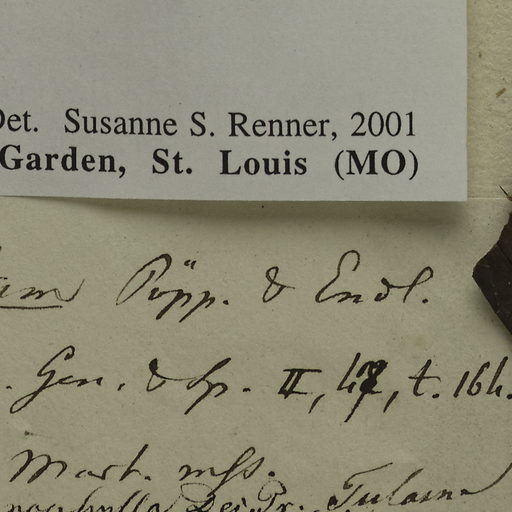 Det. Susanne S. Renner, 2001
Garden, St. Louis (MO)
um Pöpp. & Endl.
. Gen. & Sp. II, 47, t. 164.
Mart. mss.
Tulasne